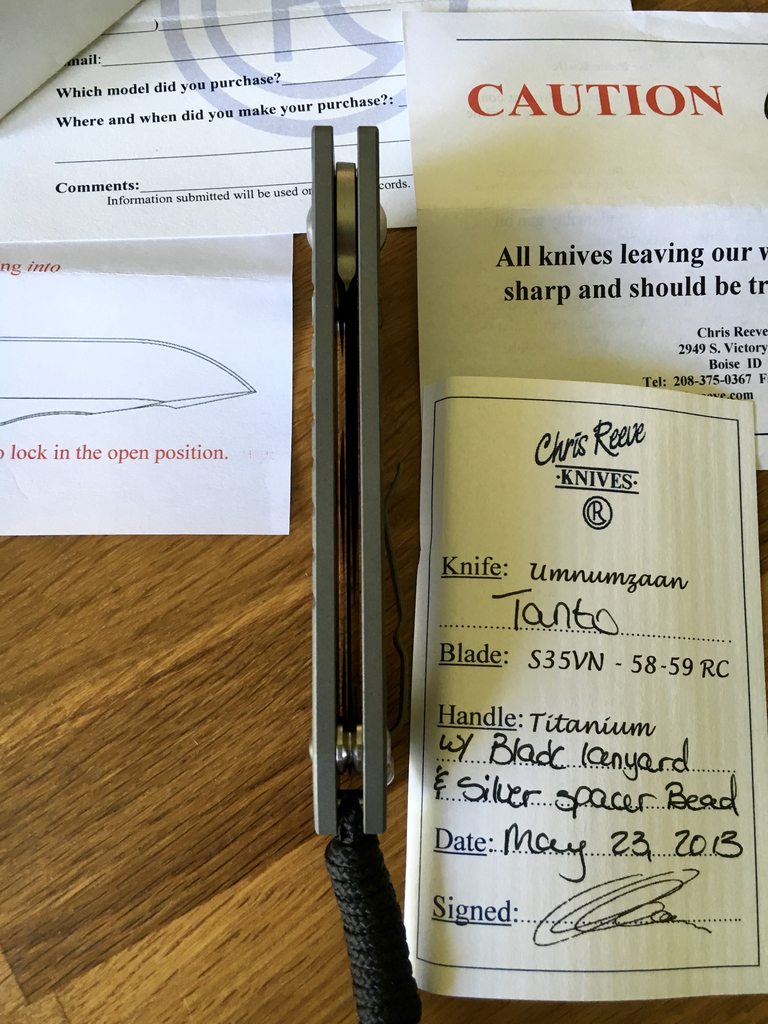 mail:
Which model did you purchase?
Where and when did you make your purchase?:
Comments:
Information submitted will be used
cords.
CAUTION
All knives leaving our
sharp and should be
Chris Reeve
2949 S. Victory
Boise ID
Tel: 208-375-0367
eve.com
ng into
lock in the open position.
Chris Reeve
·KNIVES·
R
Knife: Umnumzaan
Tanto
Blade: S35VN - 58-59 RC
Handle: Titanium
w/ Black lanyard
& Silver spacer Bead
Date: May 23, 2013
Signed: